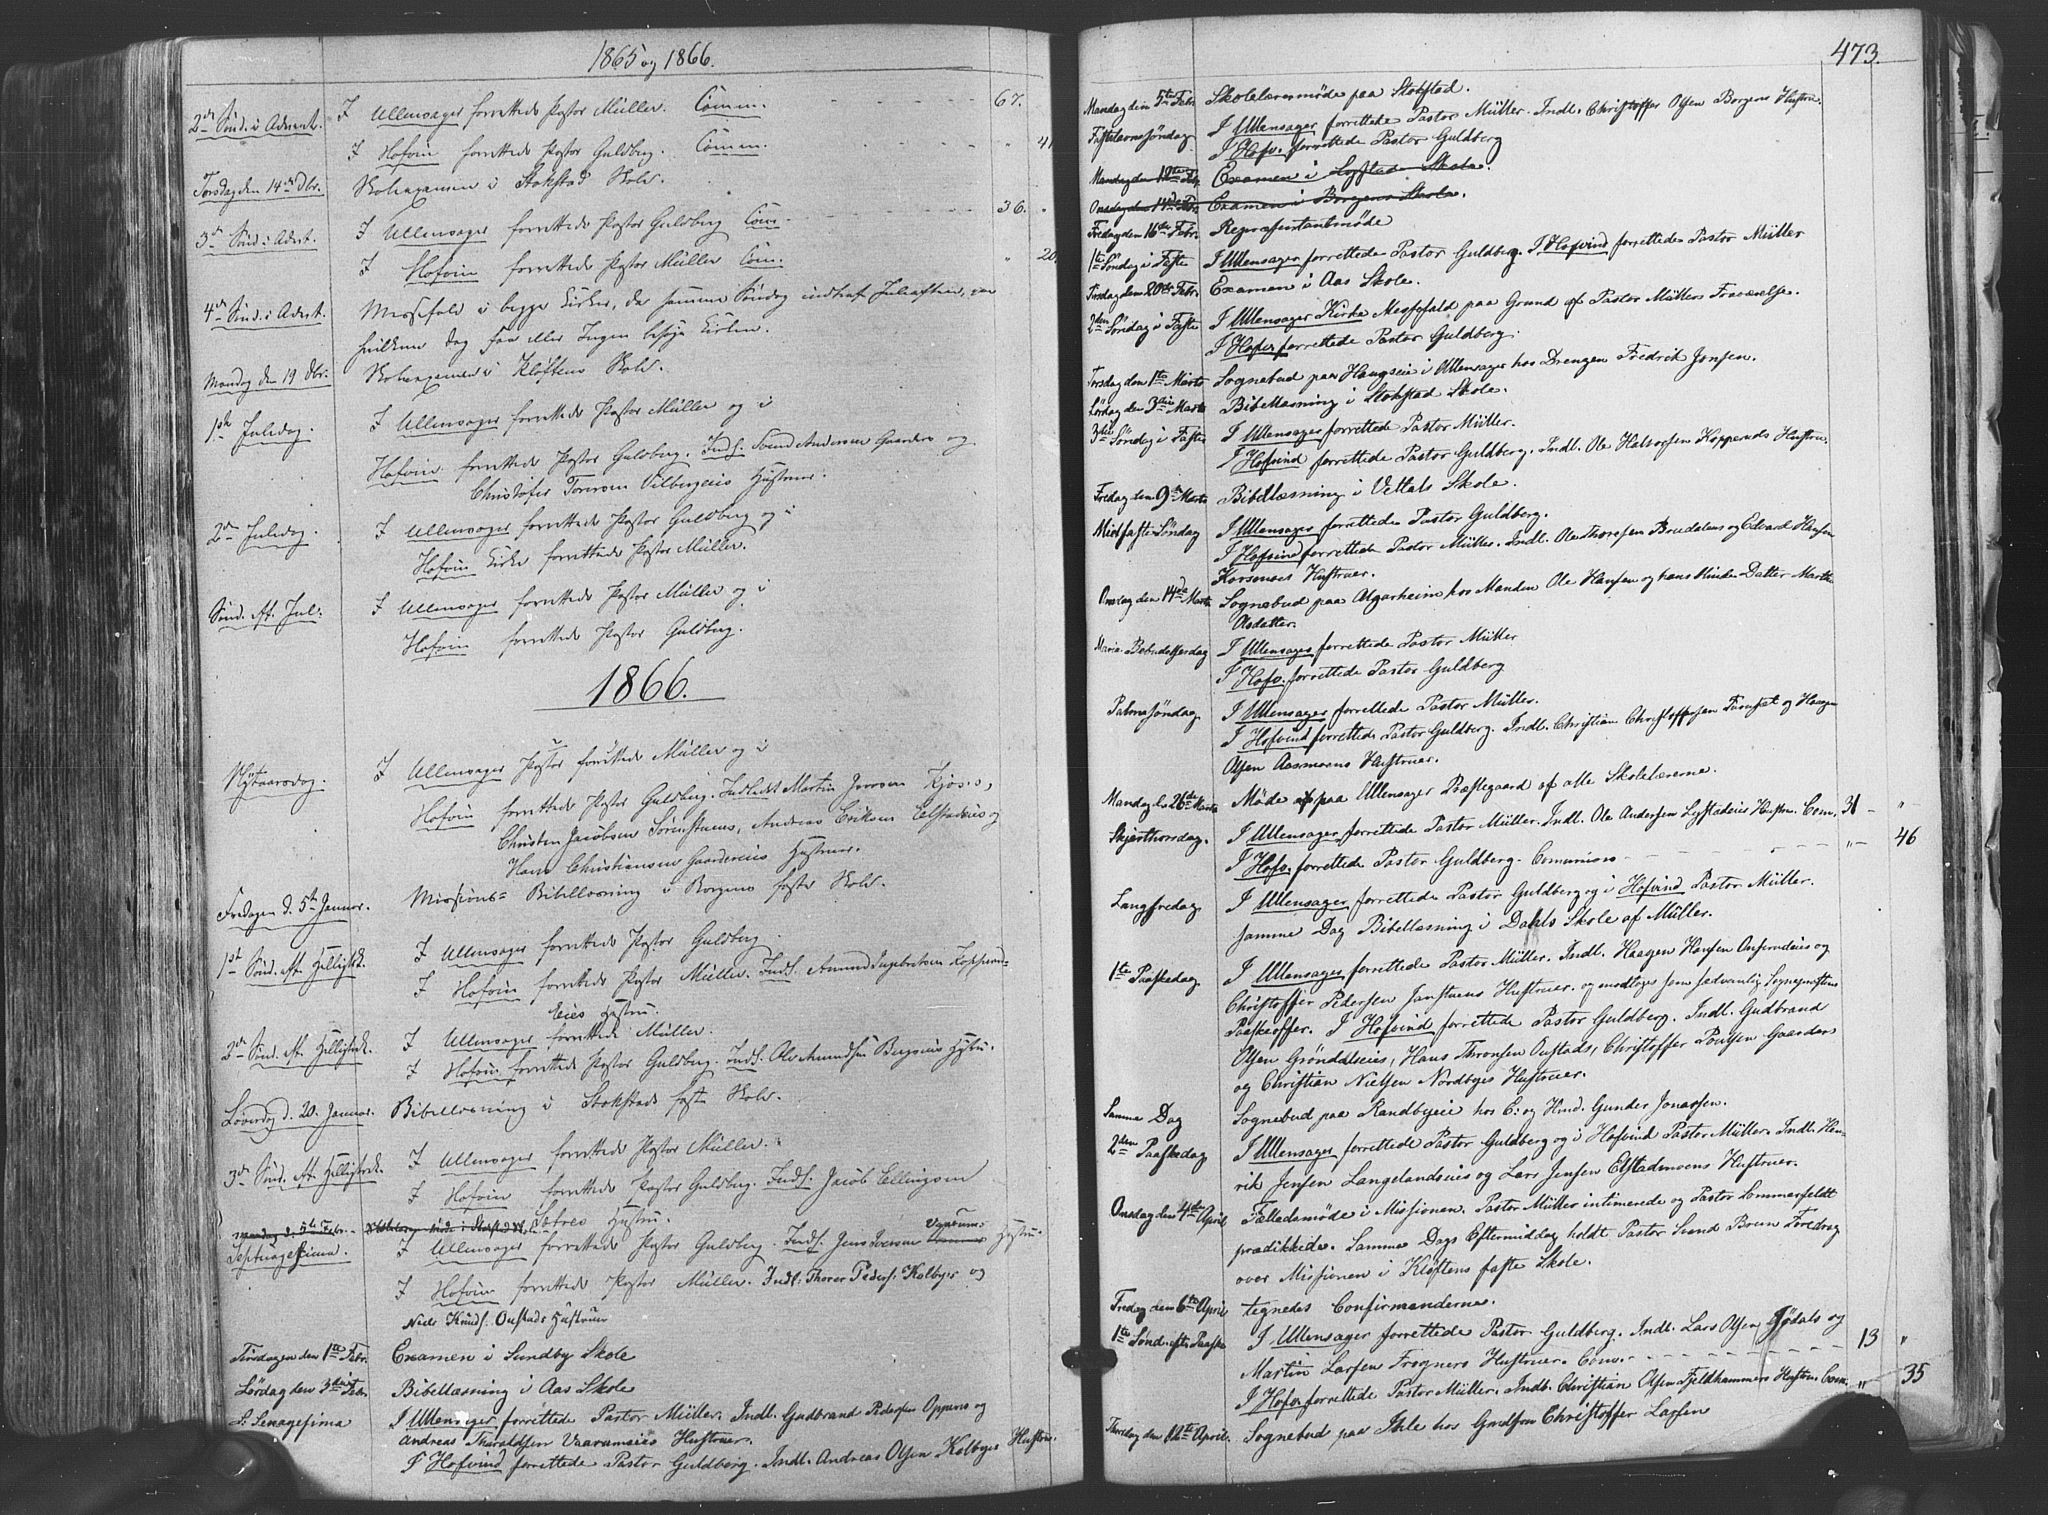 1865 og 1866.
2den Sönd. i Advent. I Ullensager forrettede Pastor Müller. Comm. 67.
I Hofvin forrettede Pastor Guldberg. Comm. " 41
Torsdag den 14de Dbr. Skoleexamen i Stokstad Skole.
3de Sönd. i Advt. I Ullensager forrettede Pastor Guldberg Com. 36. "
I Hofvin forrettede Pastor Müller Com. " 20.
4de Sönd. i Advt. Messefald i begge Kirker, da samme Söndag indtraf Juleaften, paa
hvilken Dag Faa eller Ingen besøge Kirken.
Mandag den 19 Dbr. Skoleexamen i Kløftens Skole.
1ste Juledag. I Ullensager forrettede Pastor Müller og i
Hofvin forrettede Pastor Guldberg. Indl. Svend Andersen Gaarders og
Christofer Toresen Vilbergeies Hustruer.
2den Juledag. I Ullensager forrettede Pastor Guldberg og i
Hofvin Kirke forrettede Pastor Müller.
Sönd. Ef. Jul: I Ullensager forrettede Pastor Müller og i
Hofvin forrettede Pastor Guldberg.
1866.
Nytaarsdag. I Ullensager Pastor forrettede Müller og i
Hofvin forrettede Pastor Guldberg. Indledet Martin Kjos's,
Christen Jacobsen, Andreas Eriksen Elstadeies og
Hans Christiansen Gaardereies Hustruer.
Fredagen d. 5te Januar. Missions- Bibellæsning i Borgens faste Skole.
1ste Sönd. Ef. Helligtrek. I Ullensager forrettede Pastor Guldberg.
I Hofvin forrettede Pastor Müller. Indl. Amund Ingebretsen
Eies Hustru.
2den Sönd. Ef. Helligtrek. I Ullensager forrettede Müller.
I Hofvin forrettede Pastor Guldberg. Indl. Ole Amundsen Hustru.
Löverdag d. 20. Januar. Bibellæsning i Stokstads faste Skole.
3de Sönd. Ef. Helligtrek. I Ullensager forrettede Pastor Müller.
I Hofvin forrettede Pastor Guldberg. Indl. Jacob Ellingsen
Sætres Hustru.
Mandag d. 5te Febr.
Septuagesima. I Ullensager forrettede Pastor Guldberg. Indl. Jens Iversen Hustru.
I Hofvin forrettede Pastor Müller. Indl. Thorer Peders. Kolbyes og
Niels Knuds. Oustads Hustruer
Torsdagen den 1ste Febr. Examen i Sundby Skole
Lørdag den 3die Febr. Bibellæsning i Aas Skole
S: Sexagesima I Ullensager forrettede Pastor Müller. Indl. Gudbrand Pedersen Oppens og
Andreas Tharaldsen Vaarumseies Hustruer.
I Hofvind forrettede Pastor Guldberg. Indl. Andreas Olsen Kolbyes Hustru.
473.
Mandag den 5te Febr. Skolelærermøde paa Stokstad.
Fastelavnssøndag I Ullensager forrettede Pastor Müller. Indl. Christoffer Olsen Borgens Hustru.
I Hofv. forrettede Pastor Guldberg
Mandag den 12te Febr. Examen i Lystad Skole.
Onsdag den 14de Febr. Examen i Borgens Skole.
Fredag den 16de Febr. Repræsentantmøde
1ste Søndag i Faste I Ullensager forrettede Pastor Guldberg. I Hofvind forrettede Pastor Müller
Tirsdag den 20de Febr. Examen i Aas Skole.
2den Søndag i Faste I Ullensager Kirke Messefald paa Grund af Pastor Müllers Fraværelse.
I Hofvin forrettede Pastor Guldberg.
Torsdag den 1ste Marts Sognebud paa Haugseie i Ullensager hos Drengen Fredrik Jensen.
Lørdag den 3die Marts Bibellæsning i Stokstad Skole.
3die Søndag i Faste I Ullensager forrettede Pastor Müller.
I Hofvind forrettede Pastor Guldberg. Indl. Ole Halvorsen Hoppereds Hustru.
Fredag den 9de Marts Bibellæsning i Vettals Skole.
Midfaste Søndag I Ullensager forrettede Pastor Guldberg.
I Hofvind forrettede Pastor Müller. Indl. Ole Thoresen Brudalens og Edvard Hansen
Korsmoes Hustruer.
Onsdag den 14de Marts Sognebud paa Algarheim hos Manden Ole Hansen og hans Datter Marthe
Olsdatter.
Mariæ Bebudelsesdag I Ullensager forrettede Pastor Müller
I Hofv. forrettede Pastor Guldberg
Palmesøndag. I Ullensager forrettede Pastor Müller.
I Hofvind forrettede Pastor Guldberg. Indl. Christian Christoffersen og Haagen
Olsen Aasmoens Hustruer.
Mandag d. 26de Marts Møde paa Ullensager Præstegaard af alle Skolelærerne.
Skjærthorsdag. I Ullensager forrettede Pastor Müller. Indl. Ole Andersen Lystadeies Hustru. Com. 31 - "
I Hofv. forrettede Pastor Guldberg. Comunion " - 46
Langfredag. I Ullensager forrettede Pastor Guldberg og i Hofvind Pastor Müller.
samme Dag Bibellæsning i Dahls Skole af Müller.
1ste Paaskedag. I Ullensager forrettede Pastor Müller. Indl. Haagen Hansen og
Christoffer Pedersen Hustruer. og modtoges som sædvanlig Sognepræstens
Paaskeoffer. I Hofvind forrettede Pastor Guldberg. Indl. Gudbrand
Olsen Grøndalseies, Hans Thronsen Oustads, Christoffer Poulsen Gaarders
og Christian Nielsen Nordbyes Hustruer.
Samme Dag Sognebud paa Randbyeie hos E: og Hmd. Gunder Jonassen.
2den Paaskedag I Ullensager forrettede Pastor Guldberg og i Hofvind Pastor Müller. Indl. Hen-
rik Jensen Langelandseies og Lars Jensen Elstadmoens Hustruer.
Onsdag den 4de April Fælledsmøde i Missionen. Pastor Müller intimerede og Pastor Sommerfeldt
prædikkede. Samme Dags Eftermiddag holdt Pastor Svend Brun Foredrag
over Missionen i Kløftens faste Skole.
Fredag den 6te April tegnedes Confirmanderne.
1ste Sønd. efter Paaske I Ullensager forrettede Pastor Guldberg. Indl. Lars Olsen Jødals og
Martin Larsen Frogners Hustruer. Com. 13 "
I Hofvin forrettede Pastor Müller. Indl. Christian Olsen Fjeldhammers Hustru. Com. " 35
Thorsdag den 12te April. Sognebud paa Ihle hos Christoffer Larsen